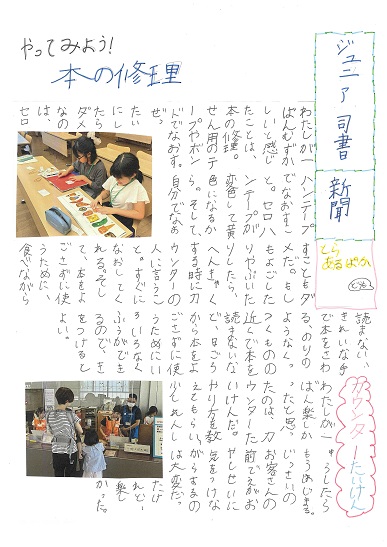 ジュニア司書新聞
とら
あるぱか
やってみよう！
本の修理
わたしが一
ばんむずか
しいと感じ
たことは、
本の修理。
せん用のテ
ープやボン
ドでなおす。
ぜっ
たい
にし
たら
ダメ
なの
は、
セロ
ハンテープ
でなおすこ
と。セロハ
ンテープが
変色して黄
色になるか
ら。そして、
自分でなお
すこともダ
メだ。もし
もよごした
りやぶいた
りしたら、
へんきゃく
する時にカ
ウンターの
人に言うこ
と。すぐに
なおしてく
れる。そし
て、本をよ
ごさずに使
うために、
食べながら
読まない、
きれいな手
で本をさわ
る、のりの
ようなく
つくものの
近くで本を
読まないな
ど、日ごろ
から本をよ
ごさずに使
うためにい
ろいろなく
ふうができ
るので、き
をつけると
よい。
カウンターたいけん
わたしが一
ばん楽しか
ったと思っ
たのは、カ
ウンターた
いけんだ。
やり方を教
えてもらい、
少しれんし
ゅうしたら
もうはじまる。
じっさいの
お客さんの
前でえがお
やしせいに
気をつけな
がらするの
は大変だっ
たけ
れど、
楽し
かった。